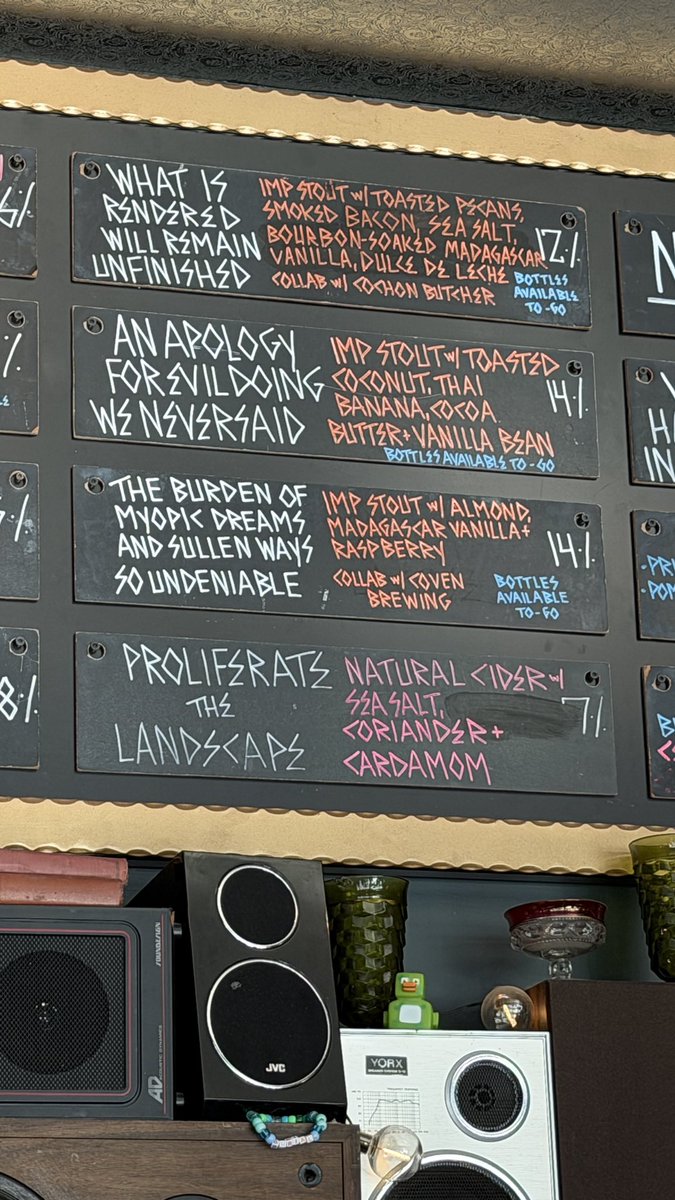 6%
WHAT IS
RENDERED
WILL REMAIN
UNFINISHED
IMP STOUT W/ TOASTED PECANS,
SMOKED BACON, SEA SALT,
BOURBON-SOAKED MADAGASCAR
VANILLA, DULCE DE LECHE
COLLAB W/ COCHON BUTCHER
12%
BOTTLES
AVAILABLE
TO-GO
N
%
AN APOLOGY
FOR EVILDOING
WE NEVER SAID
IMP STOUT W/ TOASTED
COCONUT, THAI
BANANA, COCOA
BUTTER + VANILLA BEAN
14%
BOTTLES AVAILABLE TO-GO
IN
%
THE BURDEN OF
MYOPIC DREAMS
AND SULLEN WAYS
SO UNDENIABLE
IMP STOUT W/ ALMOND,
MADAGASCAR VANILLA +
RASPBERRY
COLLAB W/ COVEN
BREWING
14%
BOTTLES
AVAILABLE
TO-GO
8%
PROLIFERATE
THE
LANDSCAPE
NATURAL CIDER W/
SEA SALT,
CORIANDER +
CARDAMOM
7%
SOUNDESIGN
AD
ACOUSTIC DYNAMICS
JVC
YORX